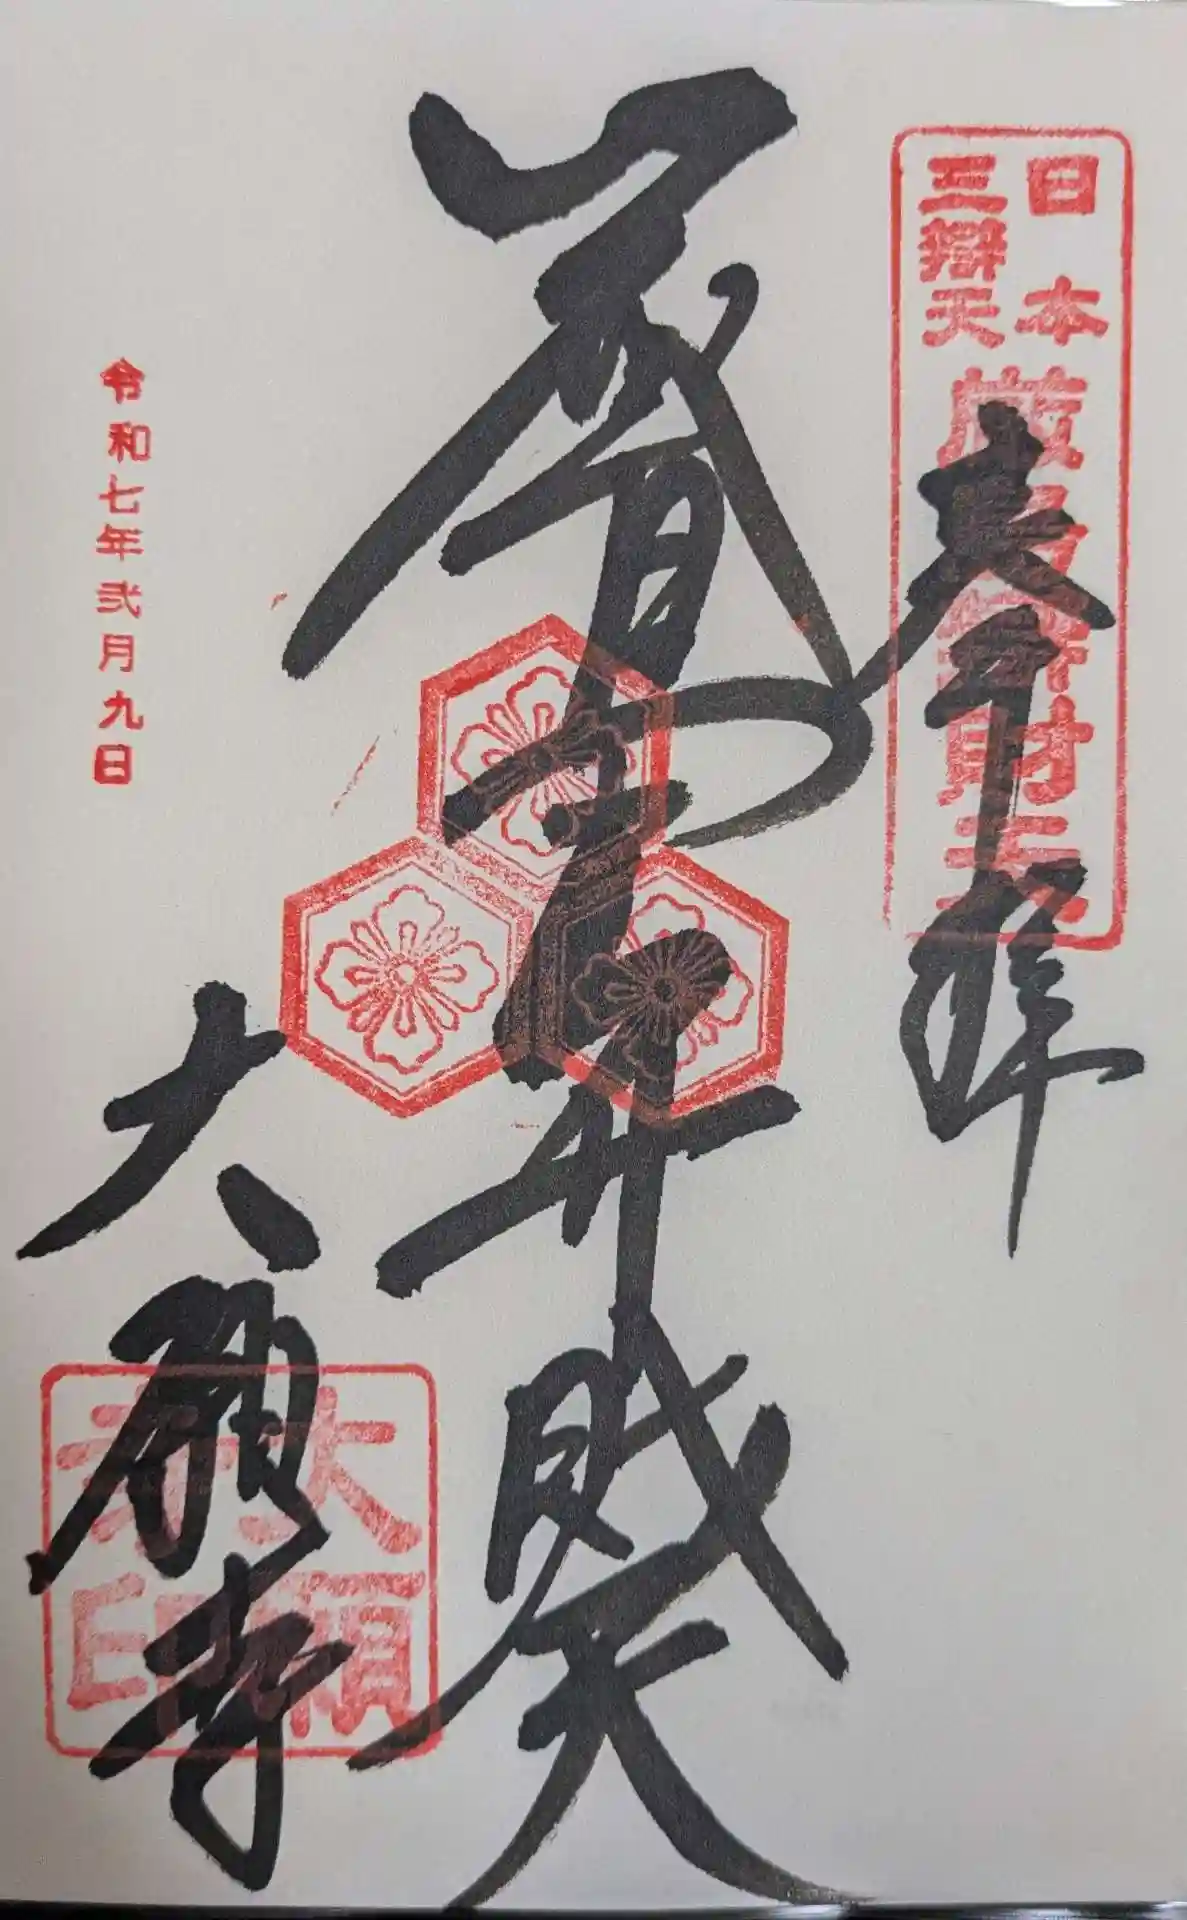 日本
三辯天
厳島弁財天
奉拝
厳島弁財天
大願寺
大願
寺印
令和七年弐月九日